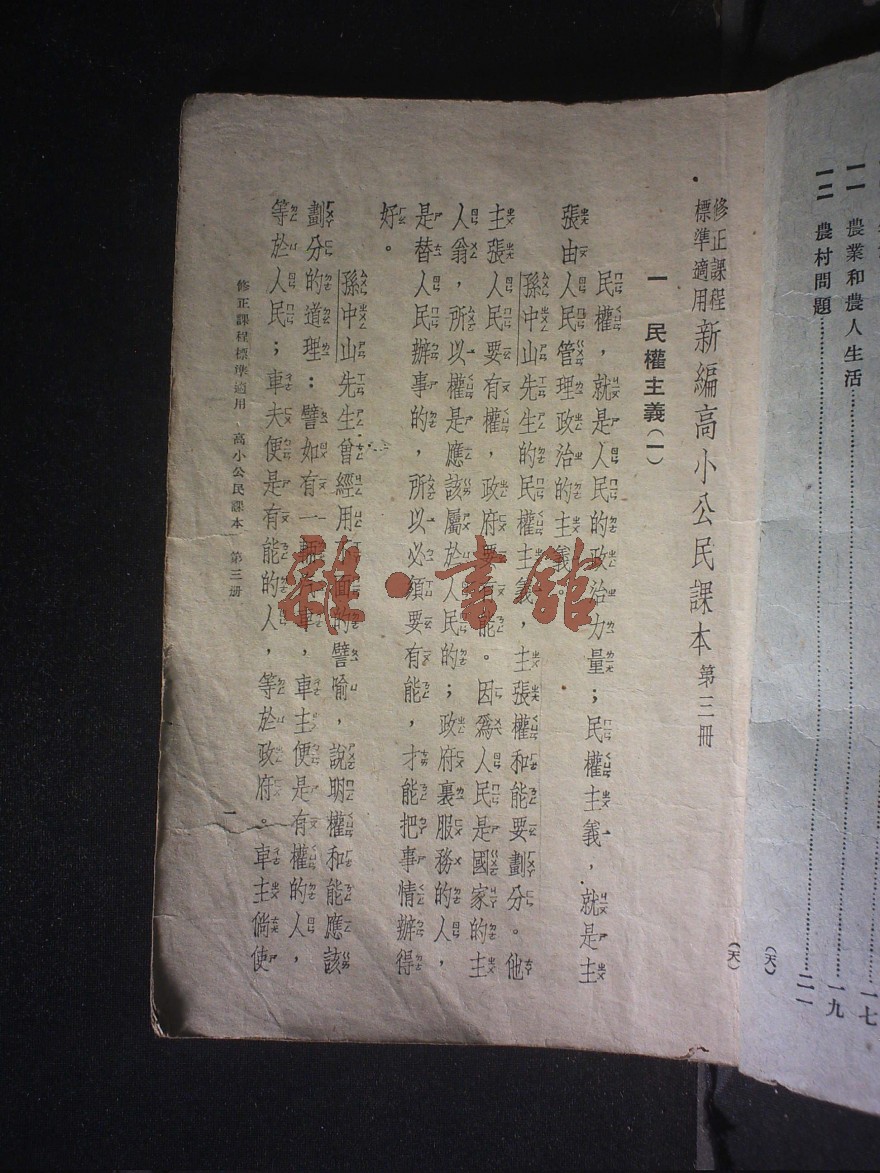 一七
一一 農業和農人生活……一九
一二 農村問題……二一
(天)
修正課程
標準適用
新編高小公民課本 第三冊
(天)
一 民權主義(一)
民權,就是人民的政治力量;民權主義,就是主
張由人民管理政治的主義。
孫中山先生的民權主義,主張權和能要劃分。他
主張人民要有權,政府要有能。因為人民是國家的主
人翁,所以權是應該屬於人民的;政府裏服務的人,
是替人民辦事的,所以必須要有能,才能把事情辦得
好。
孫中山先生曾經用下面的譬喻,說明權和能應該
劃分的道理:譬如有一輛汽車,車主便是有權的人,
等於人民;車夫便是有能的人,等於政府。車主倘使
修正課程標準適用 高小公民課本 第三冊
一
雜·書館